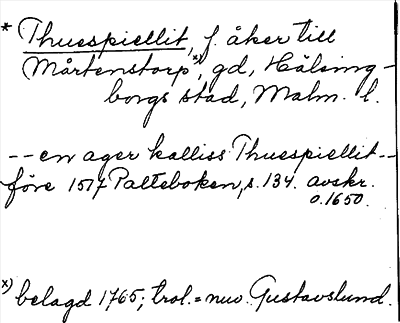 * Thuespiellit, f. åker till
Mårtenstorp x), gd, Hälsing-
borgs stad, Malm. l.
-- en ager kalliss Thuespiellit --
före 1517 Palteboken, s. 134. avskr.
o. 1650.
x) belagd 1765; trol. = nuv. Gustavslund.